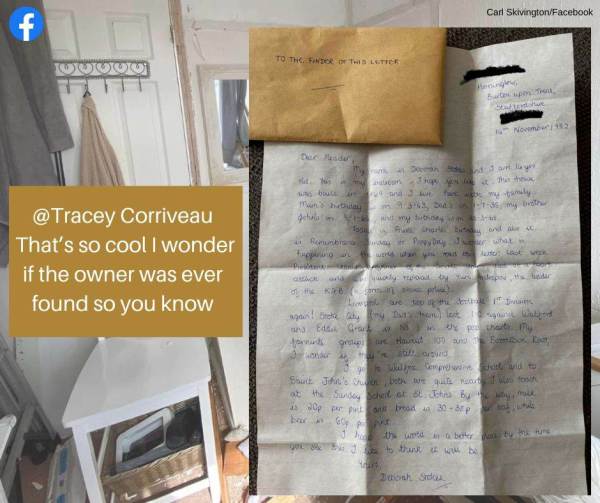 Carl Skivington/Facebook
f
TO THE FINDER OF THIS LETTER
Horninglow,
Burton upon Trent,
Staffordshire
14th November, 1982
Dear Reader,
My name is Deborah and I am 16 yrs
old. This is my I hope you like it. This house
was built in 1969 and I live here with my family.
Mum's birthday is on 9-3-43, Dad's on my brother
John's on and my birthday is on
Today is Prince Charles' birthday and also it
is Remembrance Sunday or Poppy Day. I wonder what is
happening in the world when you read this letter. Last week
President died of a heart
attack and was quickly replaced by Yuri Andropov, the leader
of the K.G.B. (a Russian secret police)
Liverpool are top of the football 1st Division
again! Stoke City (my Dad's team) lost against Watford
and Eddie Grant is No 1 in the pop charts. My
favourite groups are Haircut 100 and the Boomtown Rats,
I wonder if they're still around.
I go to Wulfric Comprehensive School and to
Saint John's Church, both are quite nearby. I also teach
at the Sunday School at St. Johns. By the way, milk
is 20p per pint and bread is 30-38p per loaf, while
beer is 60p per pint.
I hope the world is a better place by the time
you see this. I like to think it will be.
Yours
Deborah
@Tracey Corriveau
That's so cool I wonder
if the owner was ever
found so you know